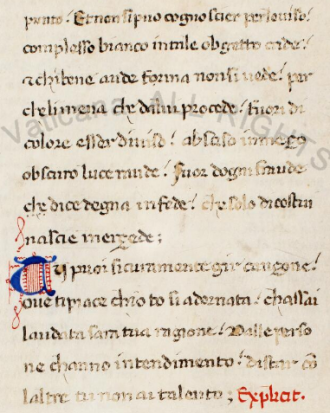 punto. Et non si puo cognoscier per louiso!
complesso bianco in tale obgetto cade!
& chi bene aude forma non si uede! per
che limena che dalui procede! fuori di
colore esser diuiso! absciso in mezço
obscuro luce raude! fuor dogni fraude
che dice degna in fede! che solo di costui
nascie merzede;
Tu puoi sicuramente gir canzone!
oue ti piace chio to si adornata! chassai
laudata sara tua ragione! Dalle perso
ne channo intendimento! di star cō
laltre tu non ai talento; Explicit.
Vaticana ALL RIGHTS